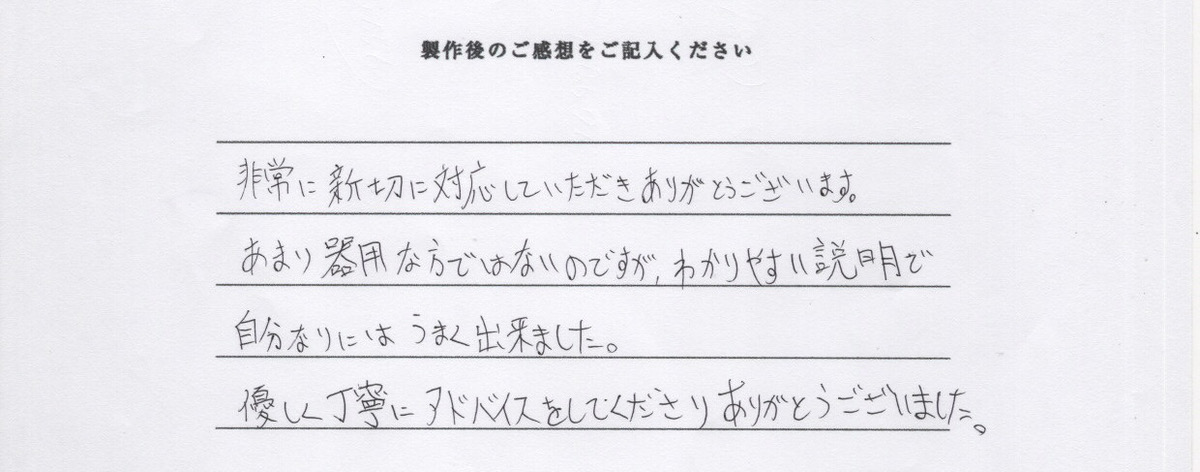 製作後のご感想をご記入ください
非常に新切に対応していただきありがとうございます。
あまり器用な方ではないのですが、わかりやすい説明で
自分なりにはうまく出来ました。
優しく丁寧にアドバイスをしてくださりありがとうございました。